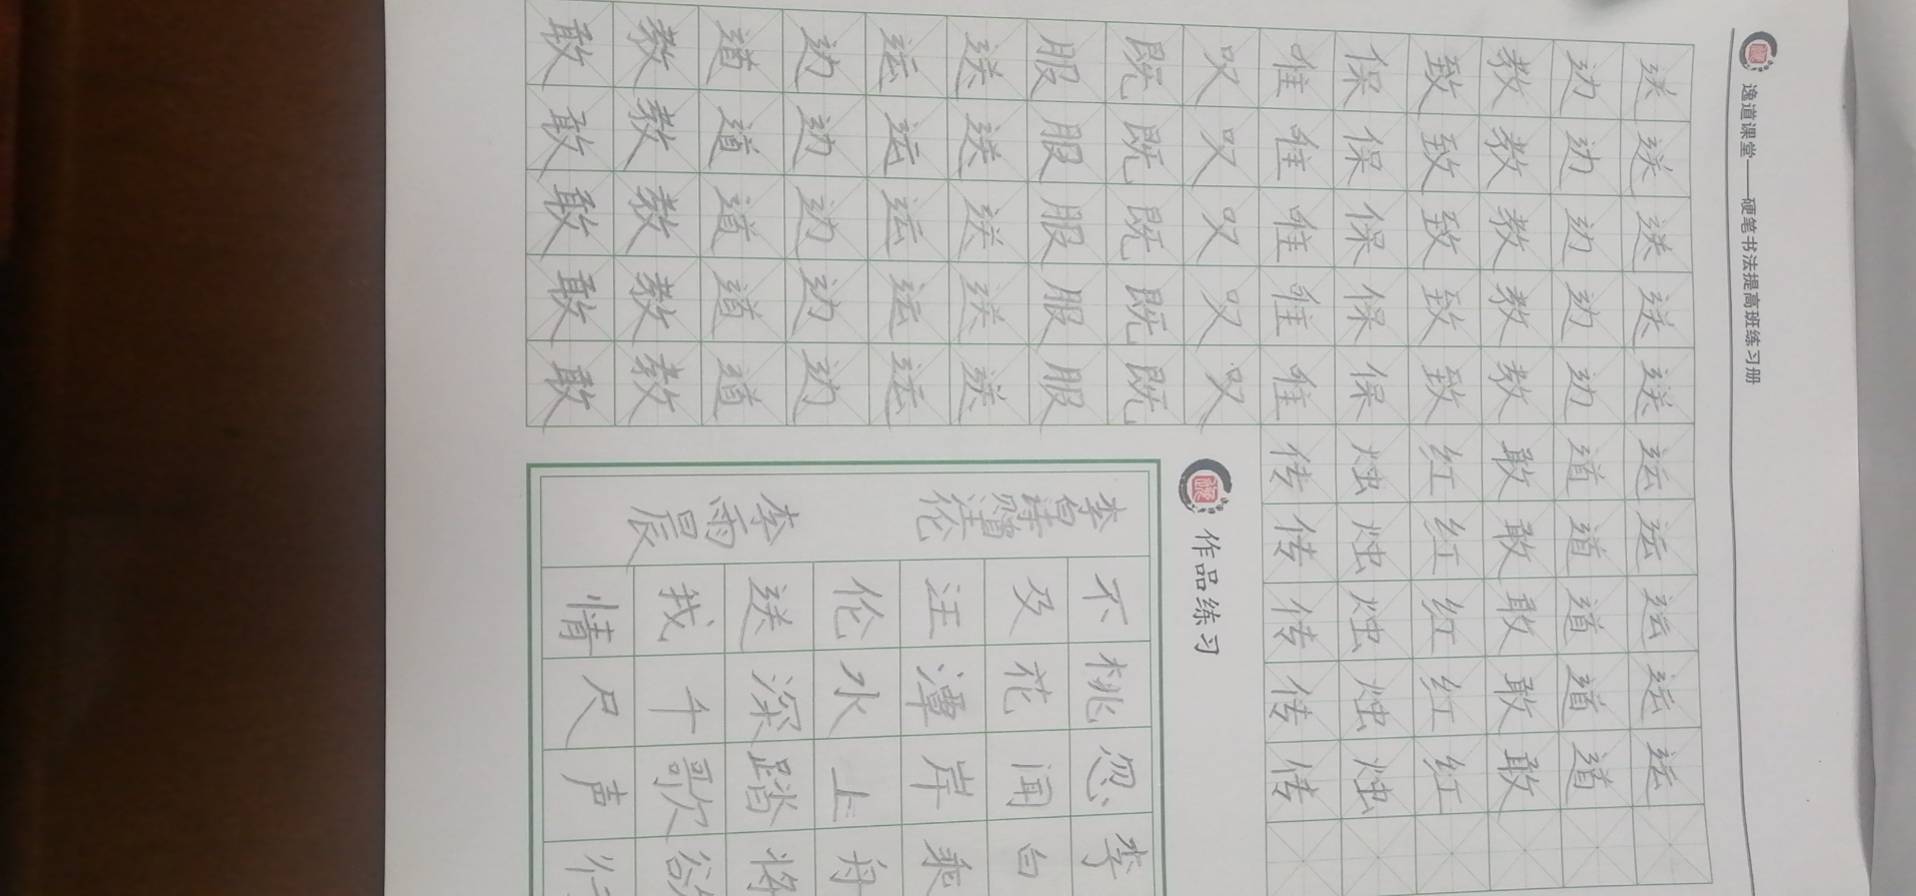 逸道课堂——硬笔书法提高班练习册
送送送送送运运运运运
边边边边边道道道道道
教教教教教敢敢敢敢敢
致致致致致红红红红红
保保保保保烛烛烛烛烛
唯唯唯唯唯传传传传传
叹叹叹叹叹
既既既既既
服服服服服
送送送送送
运运运运运
边边边边边
道道道道道
教教教教教
敢敢敢敢敢
作品练习
李白乘舟将欲行
忽闻岸上踏歌声
桃花潭水深千尺
不及汪伦送我情
李白诗赠汪伦
李雨晨